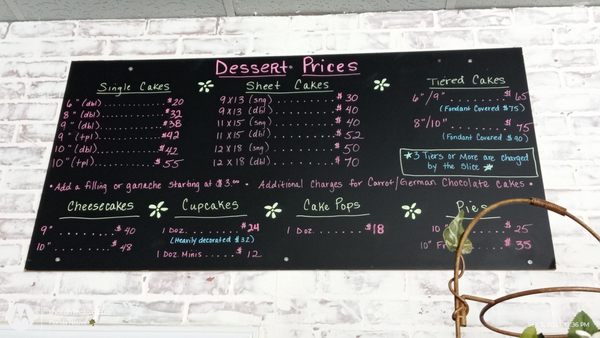 Dessert Prices
Single Cakes
6" (dbl) .......... $20
8" (dbl) .......... $32
9" (dbl) .......... $38
9" (tpl) .......... $42
10" (dbl) .......... $47
10" (tpl) .......... $55
Sheet Cakes
9x13 (sng) .......... $30
9x13 (dbl) .......... $40
11x15 (sng) .......... $40
11x15 (dbl) .......... $52
12x18 (sng) .......... $50
12x18 (dbl) .......... $70
Tiered Cakes
6"/9" .......... $65
(Fondant Covered $75)
8"/10" .......... $75
(Fondant Covered $90)
3 Tiers or More are charged
by the slice
• Add a filling or ganache starting at $3.00 • Additional Charges for Carrot/German Chocolate Cakes •
Cheesecakes
9" .......... $40
10" .......... $48
Cupcakes
1 Doz. .......... $24
(Heavily decorated $32)
1 Doz. Minis ..... $12
Cake Pops
1 Doz. .......... $18
Pies
10 .......... $25
10" $35